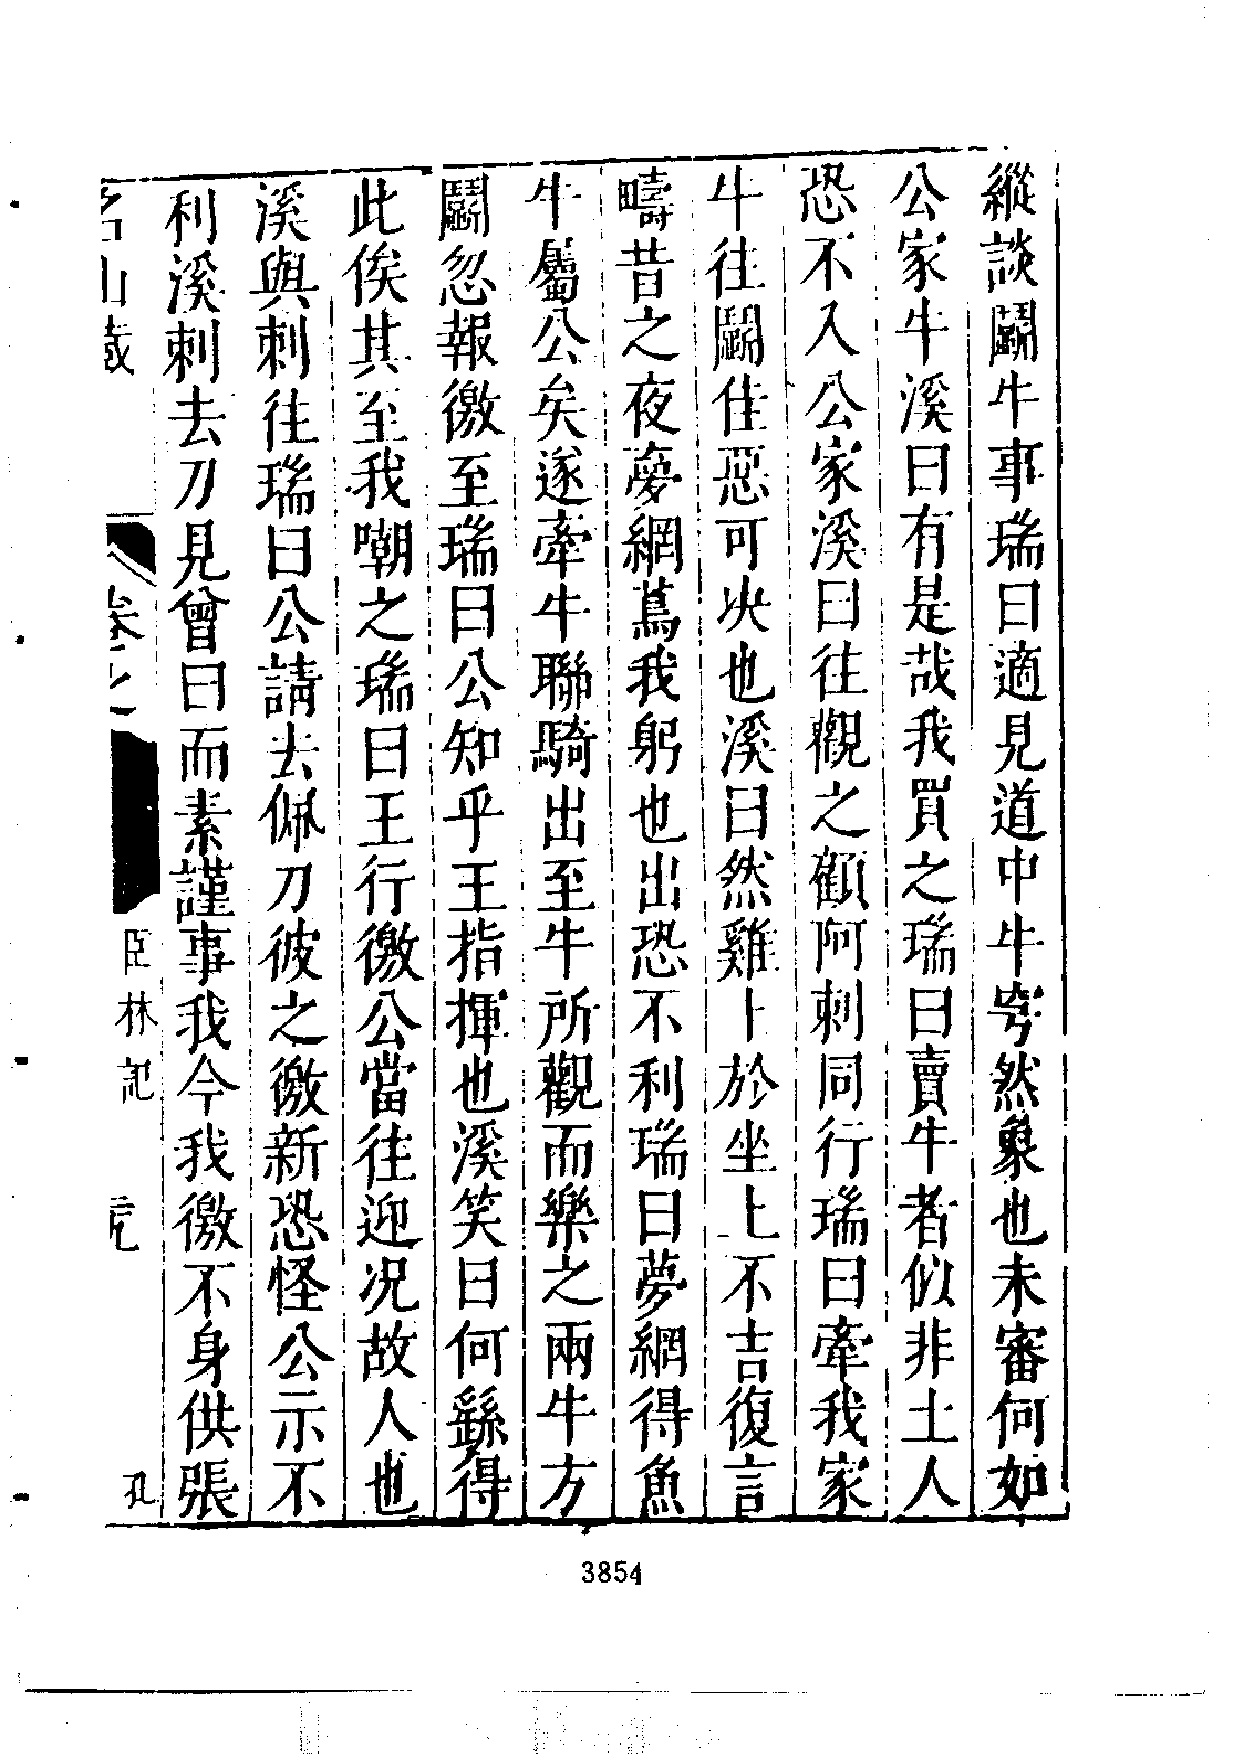 縱談鬭牛事瑞曰適見道中牛穹然象也未審何如
公家牛溪曰有是哉我買之瑞曰賣牛者似非土人
恐不入公家溪曰往觀之顧阿刺同行瑞曰牽我家
牛往鬭佳惡可决也溪曰然雞卜於坐上不吉復言
疇昔之夜夢網蔦我躬也出恐不利瑞曰夢網得魚
牛屬公矣遂牽牛聯騎出至牛所觀而樂之兩牛方
鬭忽報徼至瑞曰公知乎王指揮也溪笑曰何繇得
此俟其至我嘲之瑞曰王行徼公當往迎况故人也
溪與刺往瑞曰公請去佩刀彼之徼新恐怪公示不
利溪刺去刀見曾曰而素謹事我今我徼不身供張
名山藏
卷之
臣林記
孔
3854